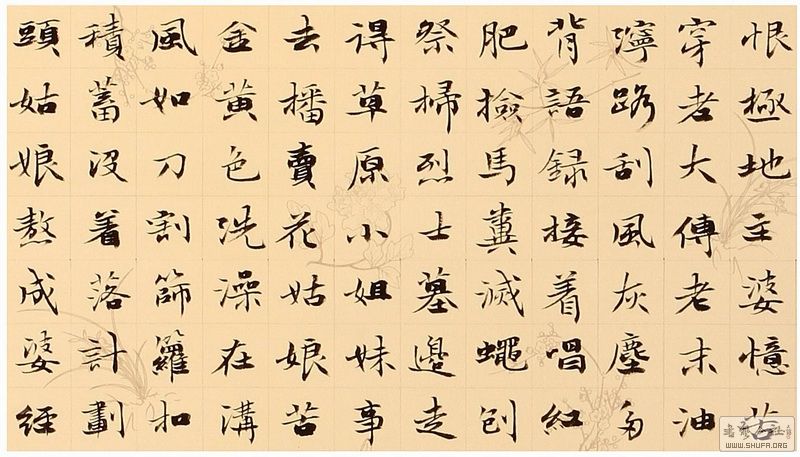 恨極地主婆憶苦
穿老大傳老末油
濘路刮風灰塵多
背語録接着唱紅
肥撿馬糞滅蠅刨
祭掃烈士墓邊走
得草原小姐妹事
去播賣花姑娘苦
金黄色洗澡在溝
風如刀割篩籮扣
積蓄没着落計劃
頭姑娘熬成婆經
WWW.SHUFA.ORG